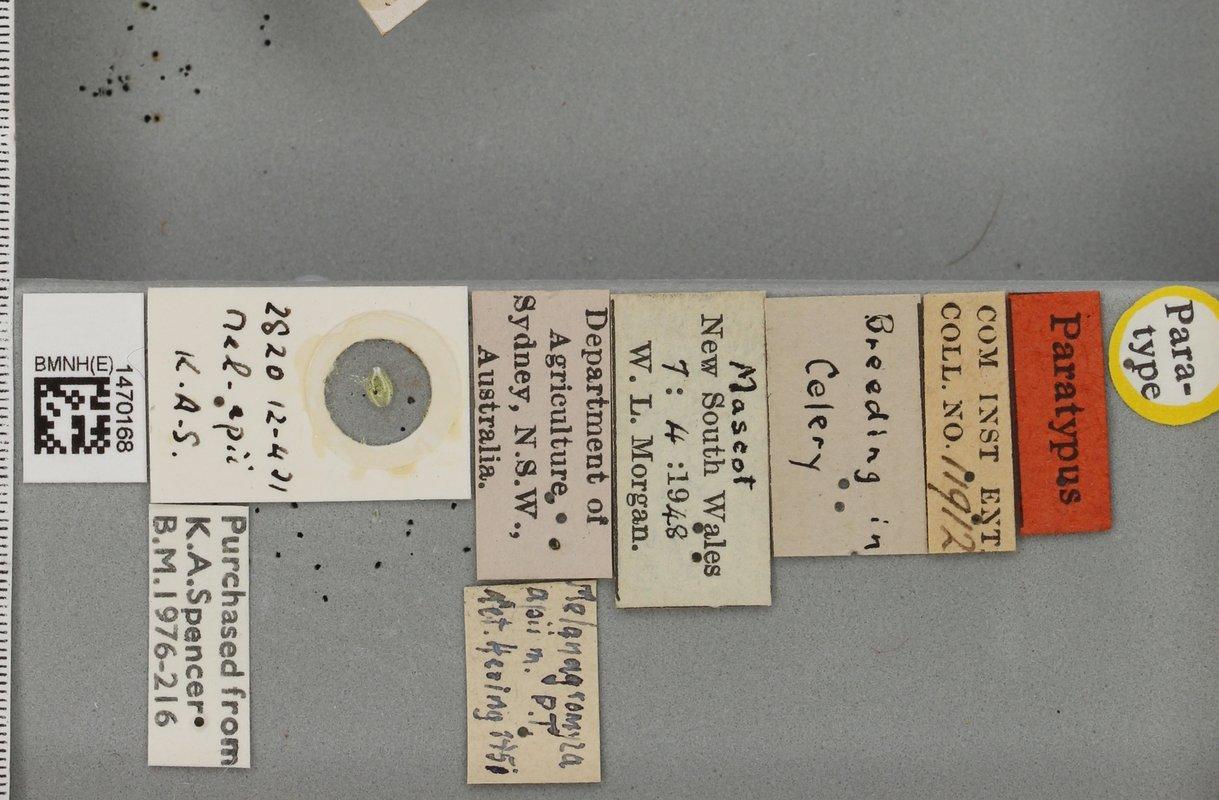 BMNH(E)
1470168
2820 12-4 71
Mel. apii
K.A.S.
Purchased from
K.A.Spencer
B.M.1976-216
Department of
Agriculture,
Sydney, N.S.W.,
Australia.
Melanagromyza
apii m. P.T
det. Hering 1951
Mascot
New South Wales
7: 4 :1948
W. L. Morgan.
Breeding in
Celery
COM INST ENT
COLL. NO. 11912
Paratypus
Para-
type